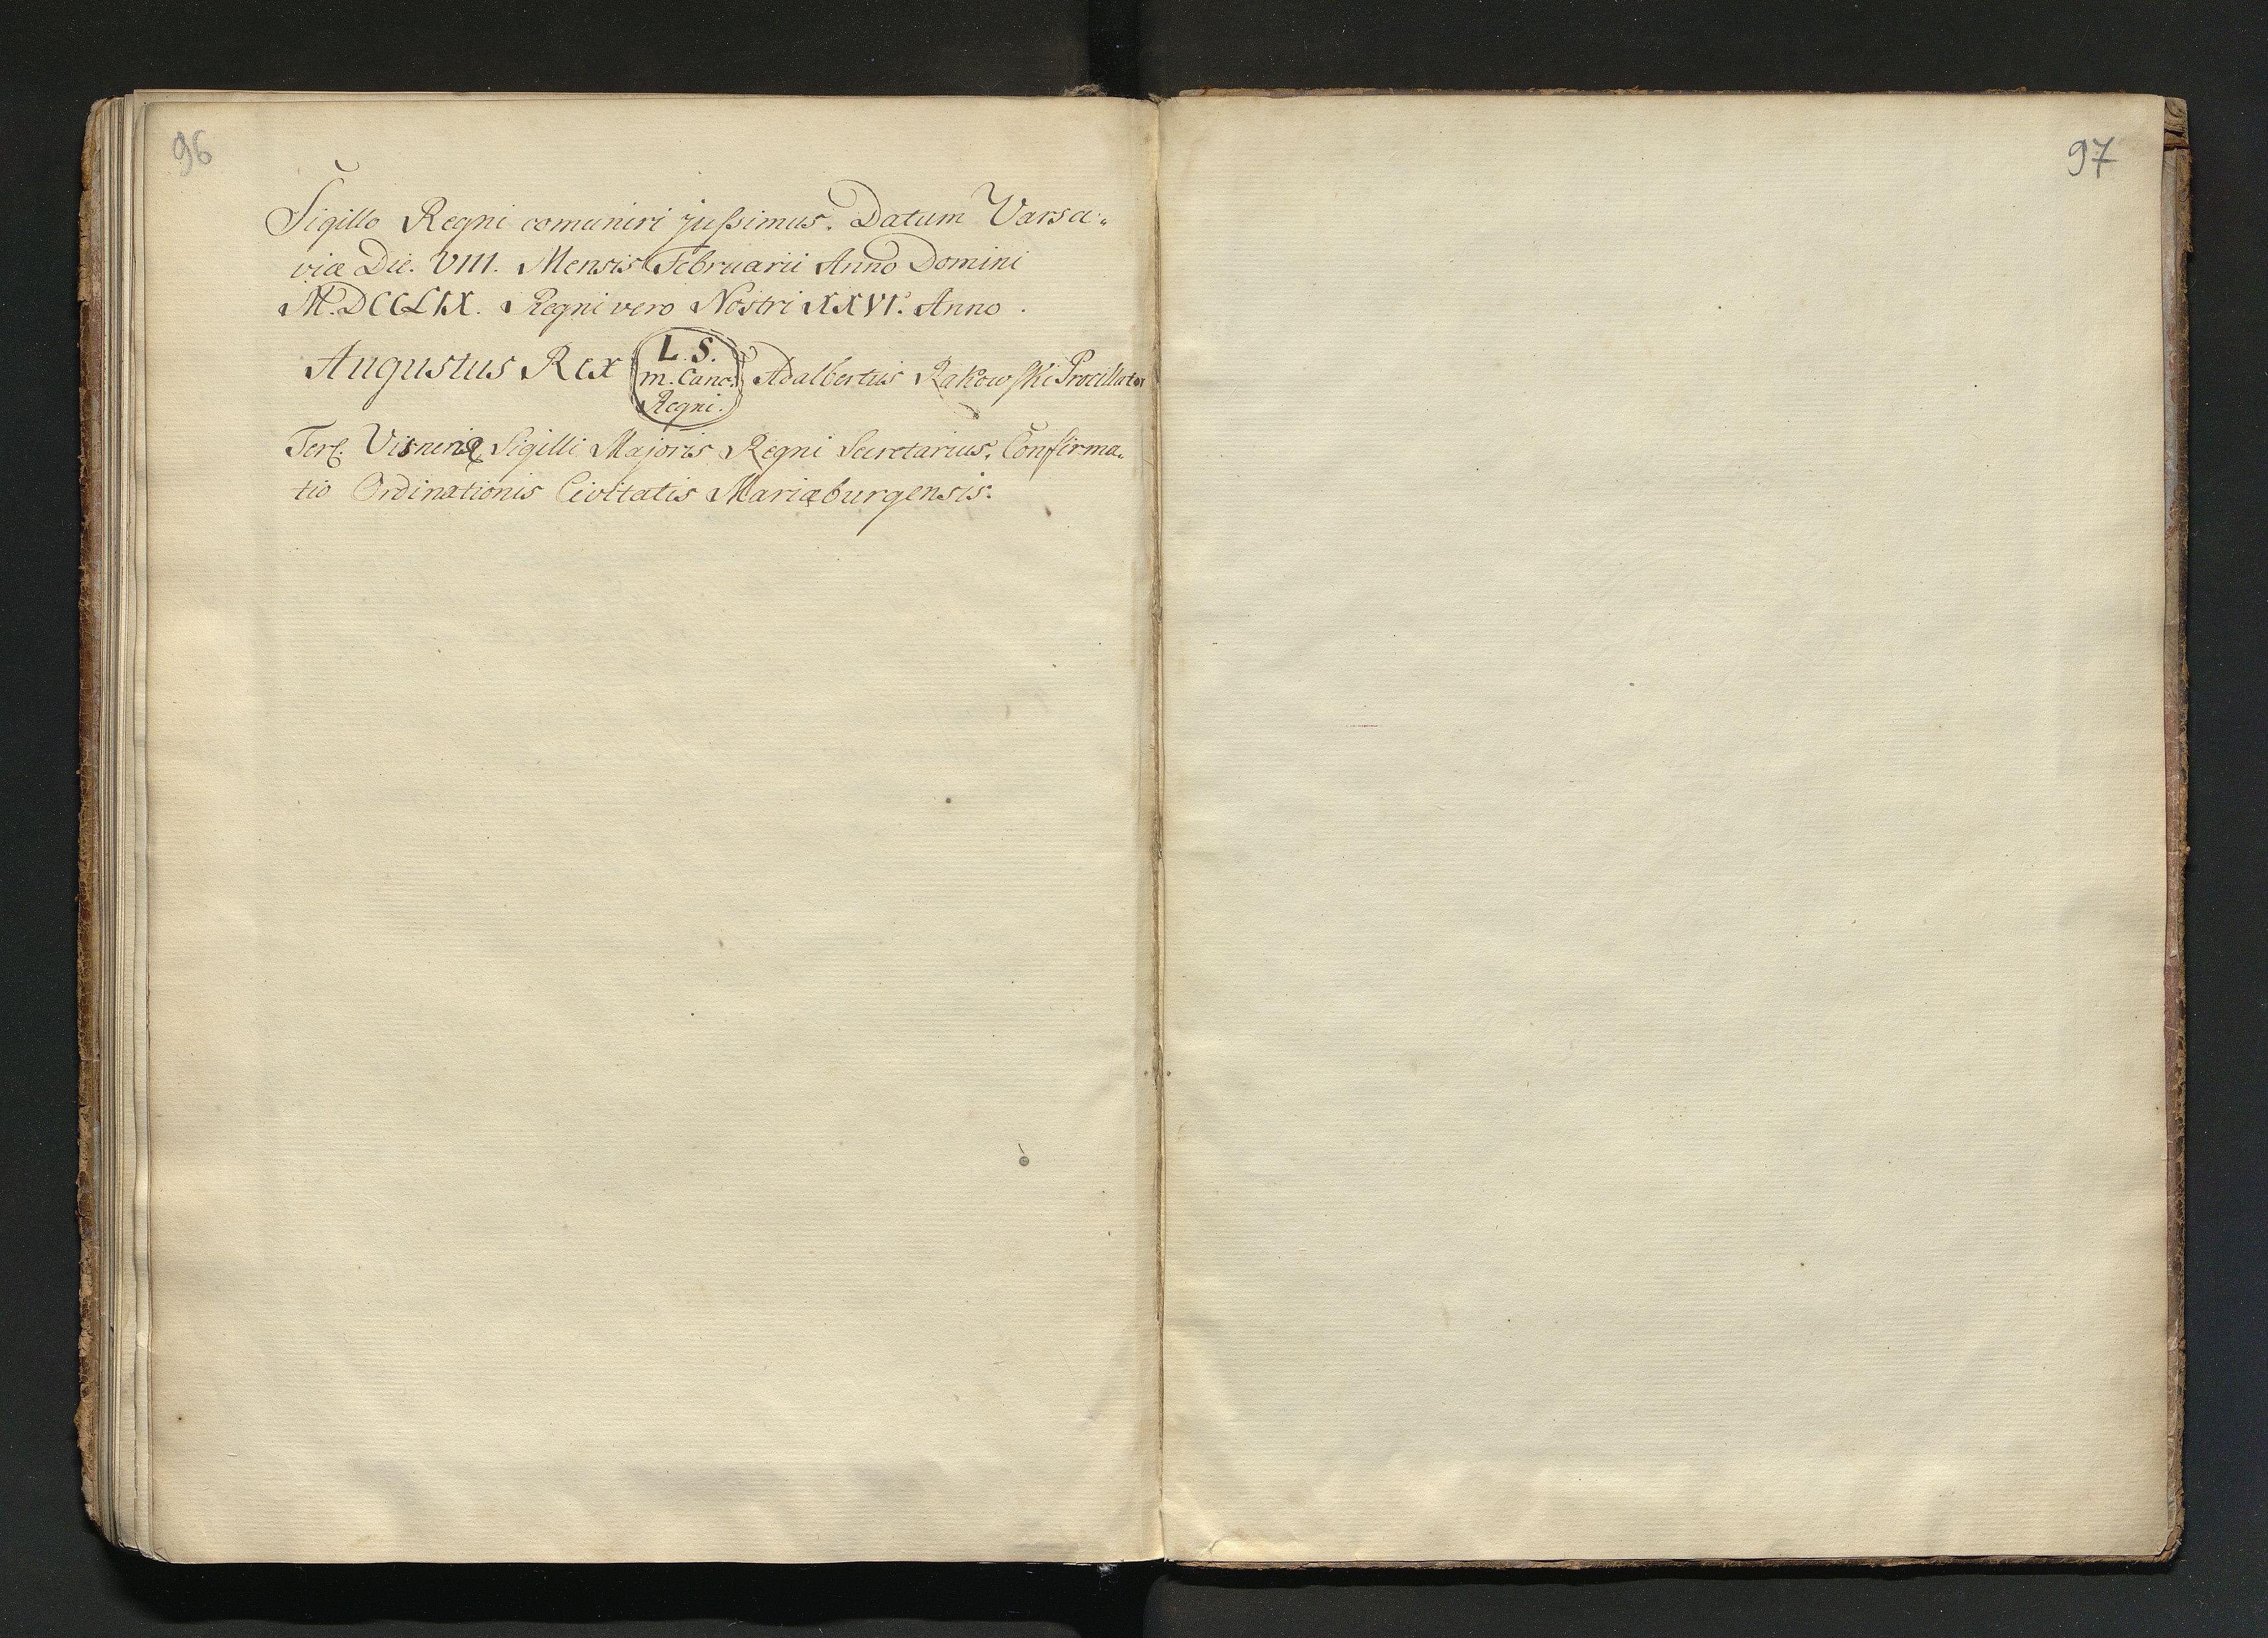 96
Sigillo Regni comuniri jußimus. Datum Varsa-
viæ Die. VIII. Mensis Februarii Anno Domini
M.DCCLIX. Regni vero Nostri XXVI. Anno.
Augustus Rex
L. S.
m. Canc.
Regni.
Adalbertus Rakowski Procillator
Visneriæ Sigilli Majoris Regni Secretarius. Confirma-
tio Ordinationis Civitatis Mariæburgensis.
97